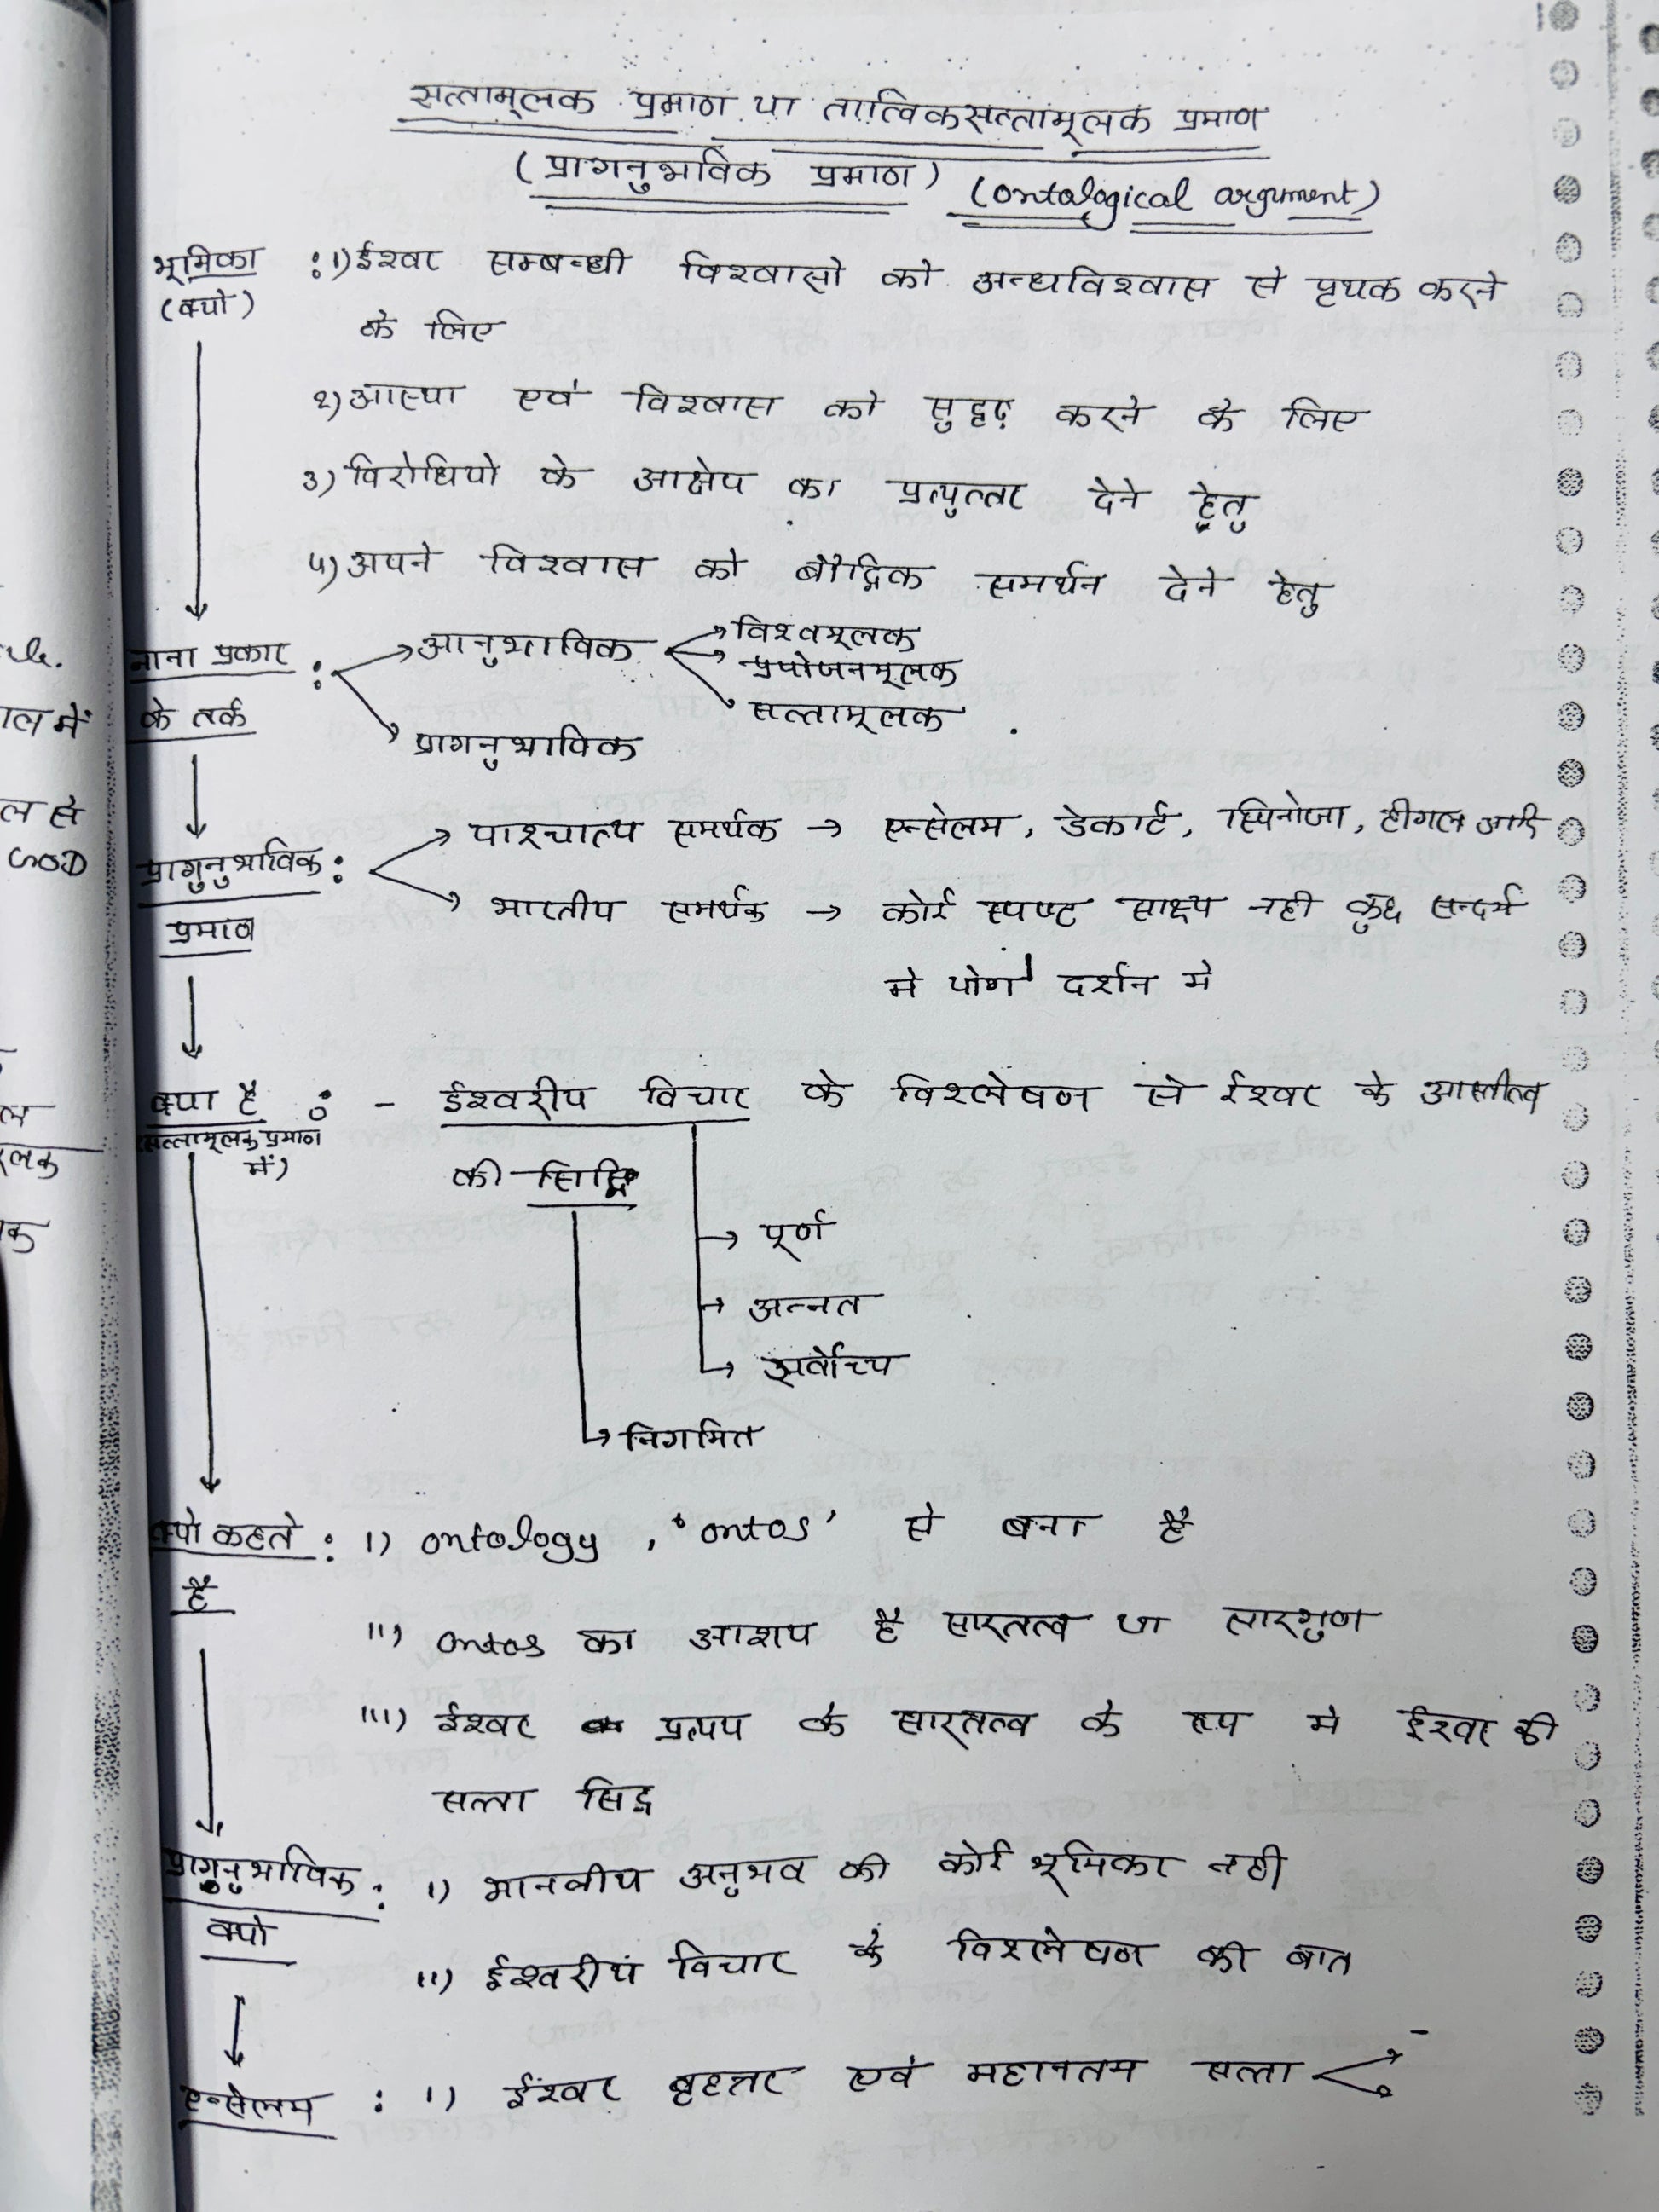 सत्तामूलक प्रमाण या तात्विकसत्तामूलक प्रमाण
(प्रागनुभाविक प्रमाण) (ontological argument)
भूमिका : 1) ईश्वर सम्बन्धी विश्वासो को अन्धविश्वास से पृथक करने
(क्यो)
के लिए
2) आस्था एवं विश्वास को सुदृढ़ करने के लिए
3) विरोधियो के आक्षेप का प्रत्युत्तर देने हेतु
4) अपने विश्वास को बौद्धिक समर्थन देने हेतु
नाना प्रकार : आनुभाविक विश्वमूलक
प्रयोजनमूलक
के तर्क सत्तामूलक
प्रागनुभाविक
प्रागुनुभाविक : → पाश्चात्य समर्थक → एन्सेलम, डेकार्ट, स्पिनोजा, हीगल आदि
प्रमाण → भारतीय समर्थक → कोई स्पष्ट साक्ष्य नही कुछ सन्दर्भ
मे योग दर्शन मे
क्या है : - ईश्वरीय विचार के विश्लेषण से ईश्वर के आस्तीत्व
(सत्तामूलक प्रमाण
में)
की सिद्धि
→ पूर्ण
→ अन्नत
→ सर्वोच्य
→ निगमित
क्यो कहते : i) ontology, 'ontos' से बना है
है
ii) ontos का आशय है सारतत्व या सारगुण
iii) ईश्वर प्रत्यय के सारतत्व के रूप मे ईश्वर की
सत्ता सिद्ध
प्रागुनुभाविक : i) मानवीय अनुभव की कोई भूमिका नही
क्यो
ii) ईश्वरीय विचार के विश्लेषण की बात
एन्सेलम : i) ईश्वर बृहत्तर एवं महानतम सत्ता
ल में
ल से
GOD
ल
लक
क